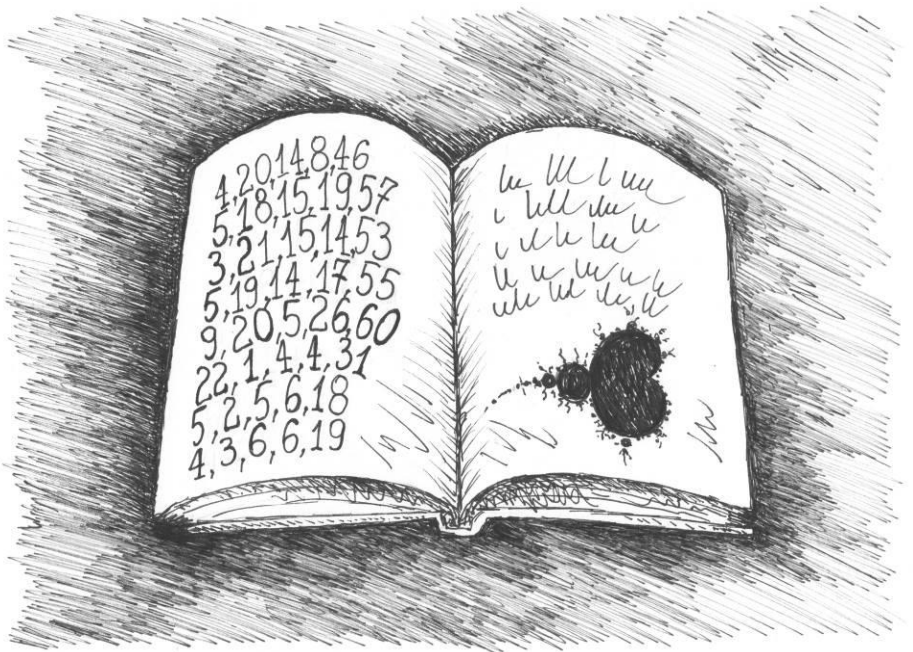 4,20,14,8,46
5,18,15,19,57
3,21,15,14,53
5,19,14,17,55
9,20,5,26,60
22,1,4,4,31
5,2,5,6,18
4,3,6,6,19